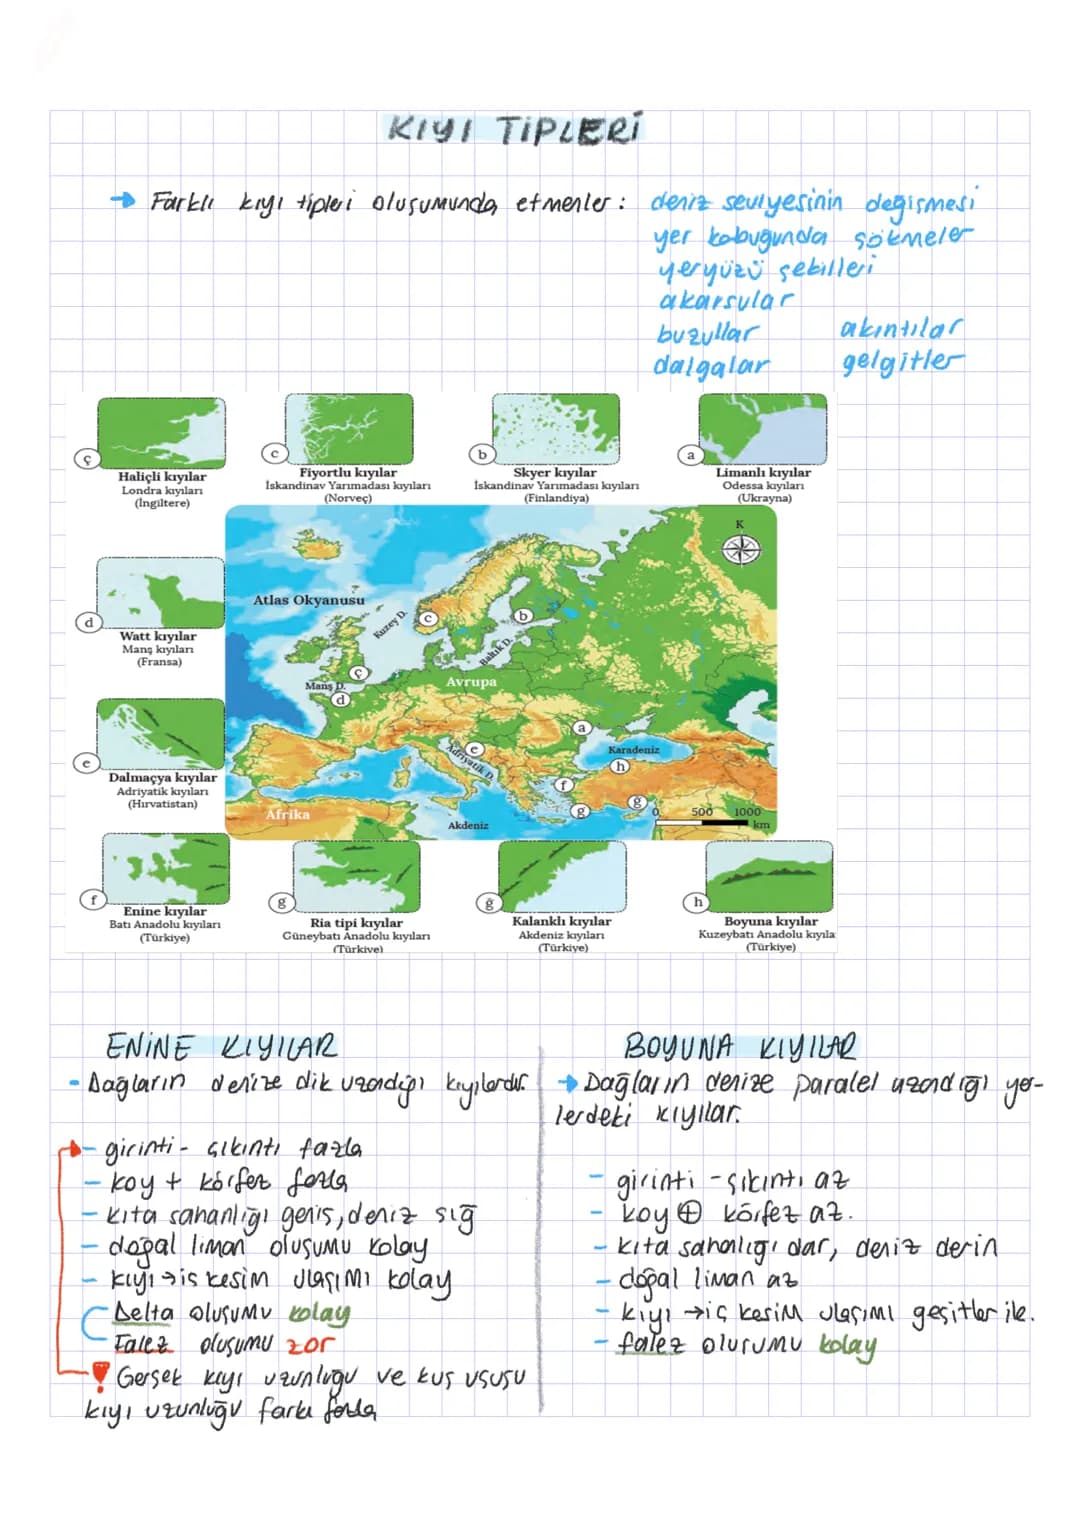 KIYI TİPLERİ
→ Farklı kıyı tipleri oluşumunda etmenler : deniz seviyesinin değişmesi
yer kabuğunda çökmeler
yeryüzü şekilleri
akarsular
buzullar akıntılar
dalgalar gelgitler
ç c b a
Haliçli kıyılar
Londra kıyıları
(İngiltere)
Fiyortlu kıyılar
İskandinav Yarımadası kıyıları
(Norveç)
Skyer kıyılar
İskandinav Yarımadası kıyıları
(Finlandiya)
Limanlı kıyılar
Odessa kıyıları
(Ukrayna)
d
Watt kıyılar
Manş kıyıları
(Fransa)
e
Dalmaçya kıyılar
Adriyatik kıyıları
(Hırvatistan)
K
Atlas Okyanusu
Kuzey D.
c
b
Baltık D.
ç
Manş D.
d
Avrupa
a
Adriyatik D.
e
Karadeniz
h
f
g
ğ
Afrika
Akdeniz
0 500 1000
km
f
Enine kıyılar
Batı Anadolu kıyıları
(Türkiye)
g
Ria tipi kıyılar
Güneybatı Anadolu kıyıları
(Türkiye)
ğ
Kalanklı kıyılar
Akdeniz kıyıları
(Türkiye)
h
Boyuna kıyılar
Kuzeybatı Anadolu kıyıla
(Türkiye)
ENİNE KIYILAR
- Dağların denize dik uzandığı kıyılardır.
- girinti - çıkıntı fazla
- koy + körfez fazla
- kıta sahanlığı geniş, deniz sığ
- doğal liman oluşumu kolay
- kıyı → iç kesim ulaşımı kolay
Delta oluşumu kolay
Falez oluşumu zor
! Gerçek kıyı uzunluğu ve kuş uçuşu
kıyı uzunluğu farkı fazla
BOYUNA KIYILAR
→ Dağların denize paralel uzandığı yer-
lerdeki kıyılar.
- girinti - çıkıntı az
- koy + körfez az.
- kıta sahanlığı dar, deniz derin
- doğal liman az
- kıyı → iç kesim ulaşımı geçitler ile.
- falez oluşumu kolay